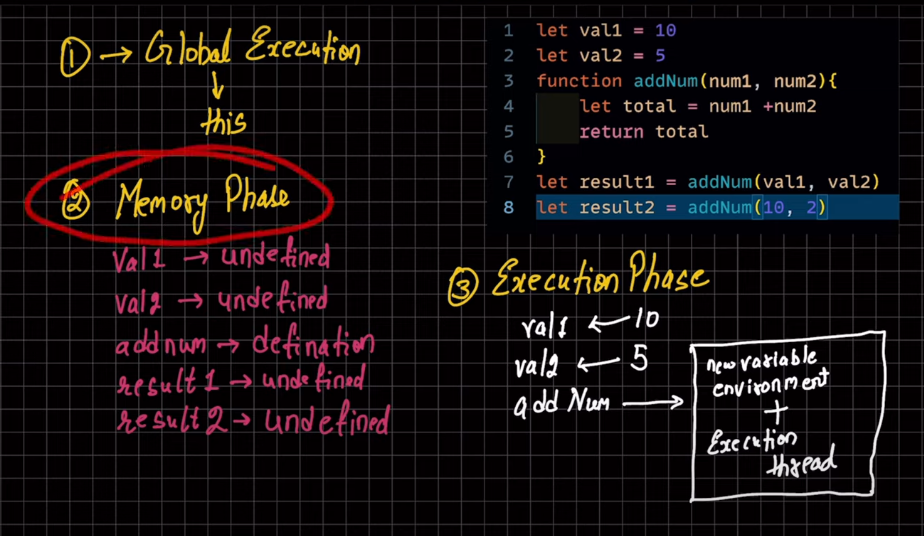 ① → Global Execution
↓
this
② Memory Phase
val1 → undefined
val2 → undefined
addnum → defination
result1 → undefined
result2 → undefined
1 let val1 = 10
2 let val2 = 5
3 function addNum(num1, num2){
4 let total = num1 +num2
5 return total
6 }
7 let result1 = addNum(val1, val2)
8 let result2 = addNum(10, 2)
③ Execution Phase
val1 ← 10
val2 ← 5
addNum →
new variable
environment
+
Execution
thread